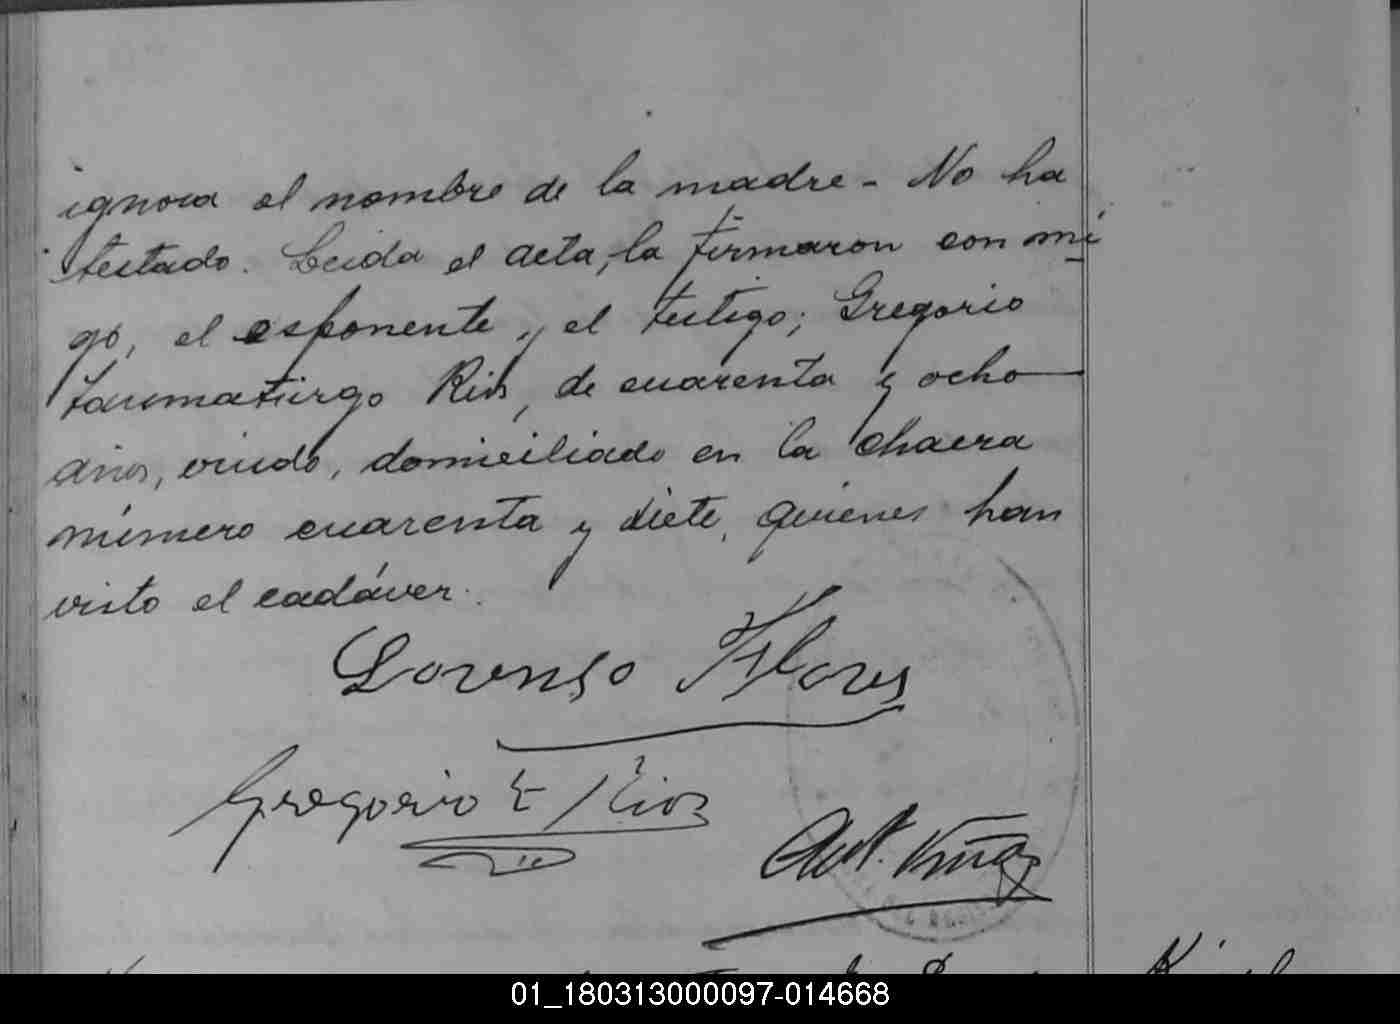 ignora el nombre de la madre - No ha
testado. Leida el acta, la firmaron con mi
go, el esponente y el testigo; Gregorio
Taumaturgo Rios, de cuarenta y ocho
años, viudo, domiciliado en la chacra
número cuarenta y siete, quienes han
visto el cadáver.
Lorenso Flores
Gregorio T Rios
01_180313000097-014668